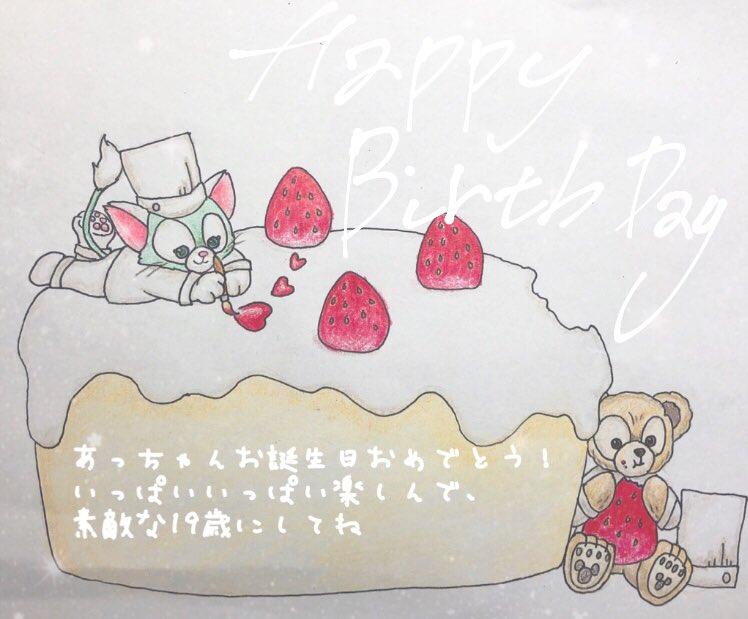 Happy
Birth Day
あっちゃんお誕生日おめでとう！
いっぱいいっぱい楽しんで、
素敵な19歳にしてね